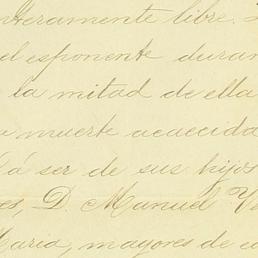 nteramente libre.
el esponente duran
la mitad de ella
muerte acaecida
á ser de sus hijos
es, D. Manuel
Maria, mayores de